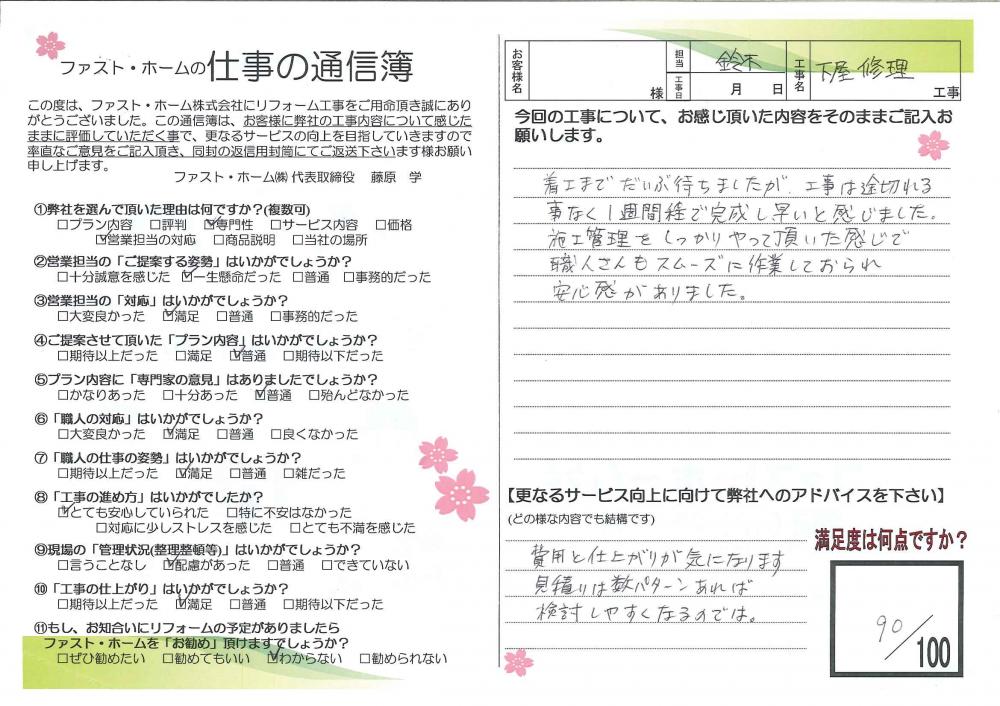 ファスト・ホームの仕事の通信簿
この度は、ファスト・ホーム株式会社にリフォーム工事をご用命頂き誠にあり
がとうございました。この通信簿は、お客様に弊社の工事内容について感じた
ままに評価していただく事で、更なるサービスの向上を目指していきますので
率直なご意見をご記入頂き、同封の返信用封筒にてご返送下さいます様お願い
申し上げます。
ファスト・ホーム㈱ 代表取締役 藤原 学
①弊社を選んで頂いた理由は何ですか?(複数可)
□プラン内容 □評判 ☑専門性 □サービス内容 □価格
☑営業担当の対応 □商品説明 □当社の場所
②営業担当の「ご提案する姿勢」はいかがでしょうか?
□十分誠意を感じた ☑一生懸命だった □普通 □事務的だった
③営業担当の「対応」はいかがでしょうか?
□大変良かった ☑満足 □普通 □事務的だった
④ご提案させて頂いた「プラン内容」はいかがでしょうか?
□期待以上だった □満足 ☑普通 □期待以下だった
⑤プラン内容に「専門家の意見」はありましたでしょうか?
□かなりあった □十分あった ☑普通 □殆んどなかった
⑥「職人の対応」はいかがでしょうか?
□大変良かった ☑満足 □普通 □良くなかった
⑦「職人の仕事の姿勢」はいかがでしょうか?
□期待以上だった ☑満足 □普通 □雑だった
⑧「工事の進め方」はいかがでしたか?
☑とても安心していられた □特に不安はなかった
□対応に少しストレスを感じた □とても不満を感じた
⑨現場の「管理状況(整理整頓等)」はいかがでしょうか?
□言うことなし ☑配慮があった □普通 □できていない
⑩「工事の仕上がり」はいかがでしょうか?
□期待以上だった ☑満足 □普通 □期待以下だった
⑪もし、お知合いにリフォームの予定がありましたら
ファスト・ホームを「お勧め」頂けますでしょうか?
□ぜひ勧めたい □勧めてもいい ☑わからない □勧められない
お客様名 様 担当 鈴木 工事日 月 日 工事名 下屋修理 工事
今回の工事について、お感じ頂いた内容をそのままご記入お
願いします。
着工までだいぶ待ちましたが、工事は途切れる
事なく1週間程で完成し早いと感じました。
施工管理をしっかりやって頂いた感じで
職人さんもスムーズに作業しておられ
安心感がありました。
【更なるサービス向上に向けて弊社へのアドバイスを下さい】
(どの様な内容でも結構です)
費用と仕上がりが気になります
見積りは数パターンあれば
検討しやすくなるのでは。
満足度は何点ですか?
90/100